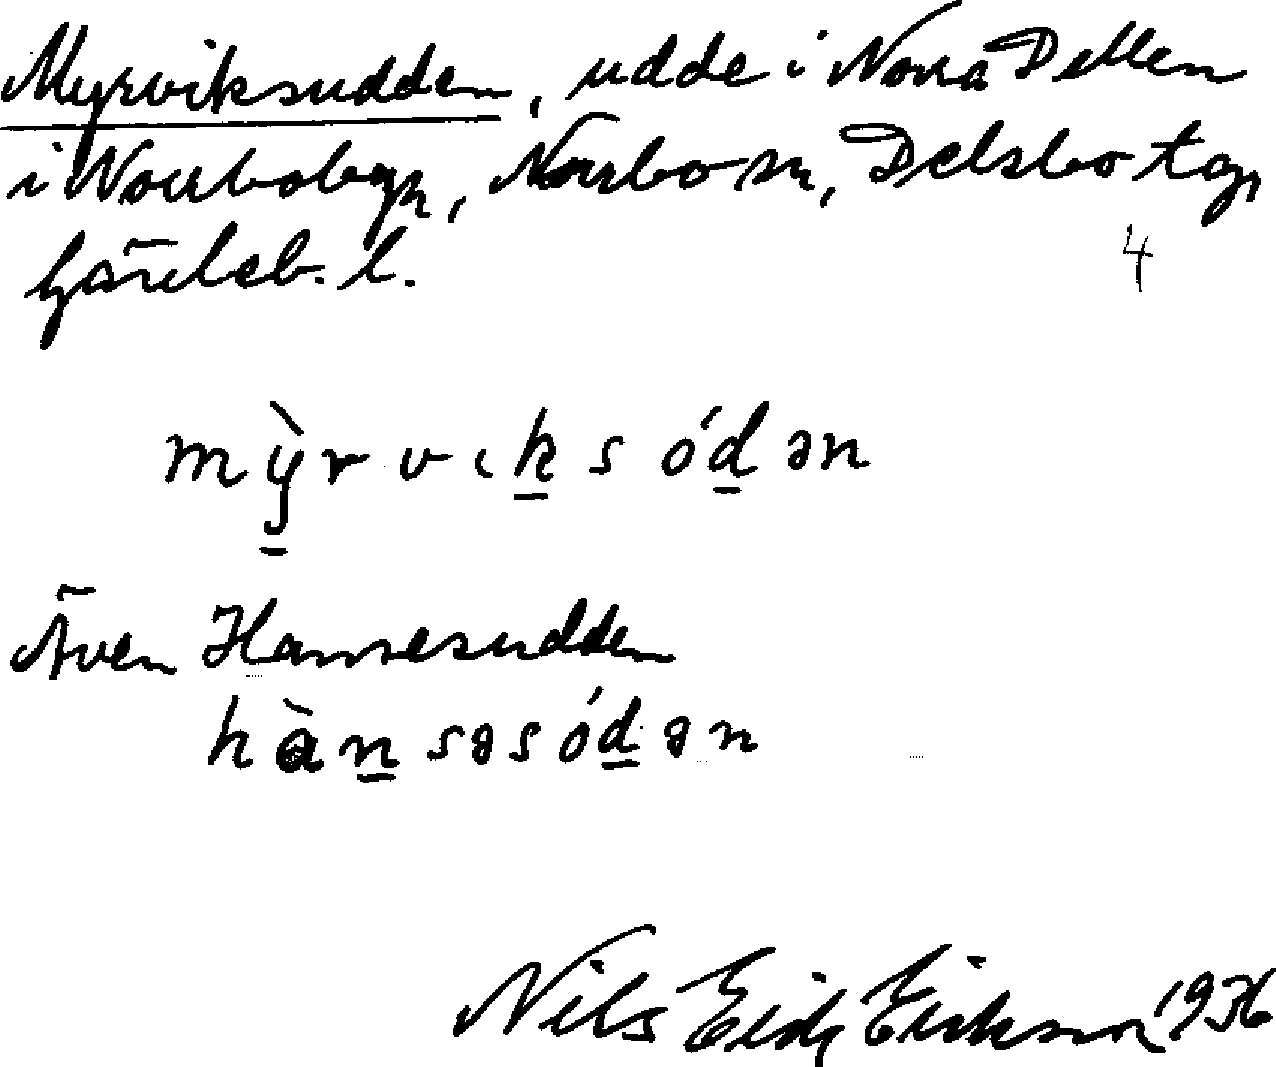 Myrviksudden, udde i Norra Dellen
i Norrbobygn, Norrbo sn, Delsbo tg,
Gävleb. l.
4
mỳ̠rvık̠sód̠ən
Även Hansesudden
hàn̠səsód̠ən
Nils Erik Eriksson 1936